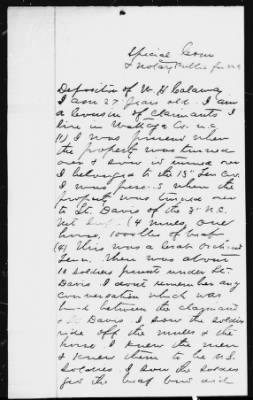 Special Com
& Notary Public for N.C.
Deposition of W. H. Calaway
I am 27 years old. I am
a cousin of Claimants I
live in Watauga Co. N.C.
(1) I was present when
the property was turned
over & saw it turned over
I belonged to the 13" Ten Cav.
I was present when the
property was turned over
to Lt. Davis of the 3" N.C.
(4 mules, one
horse, 100 lbs of beef
(4) This was a
Tenn. There was about
10 soldiers present under Lt.
Davis. I don't remember any
conversation which was
had between the claimant
& Lt Davis. I saw the soldiers
ride off the mules & the
horse. I knew the men
& knew them to be U.S.
Soldiers. I saw the soldiers
get the beef but did